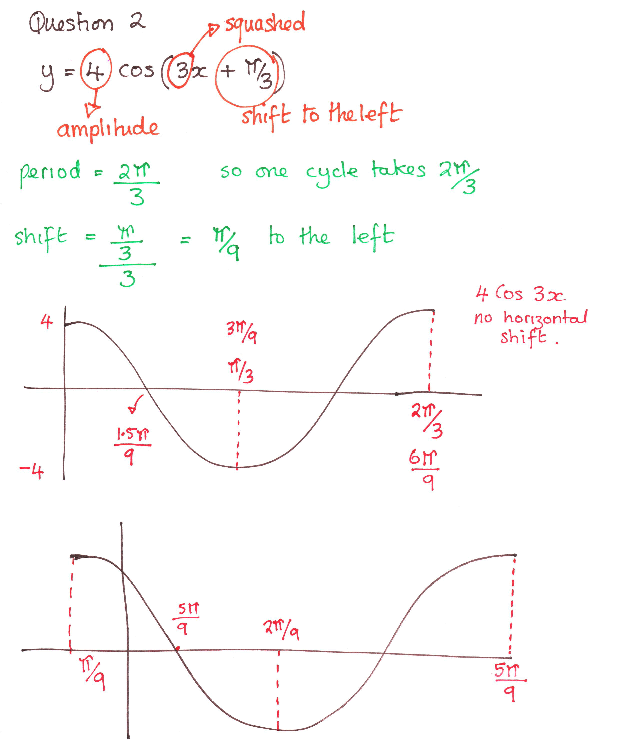 Question 2
squashed
y = 4 cos (3x + π/3)
amplitude
shift to the left
period = 2π/3 so one cycle takes 2π/3
shift = π/3/3 = π/9 to the left
4 Cos 3x.
no horizontal
shift.
4
3π/9
π/3
1.5π/9
2π/3
6π/9
-4
5π/9
2π/9
π/9
5π/9